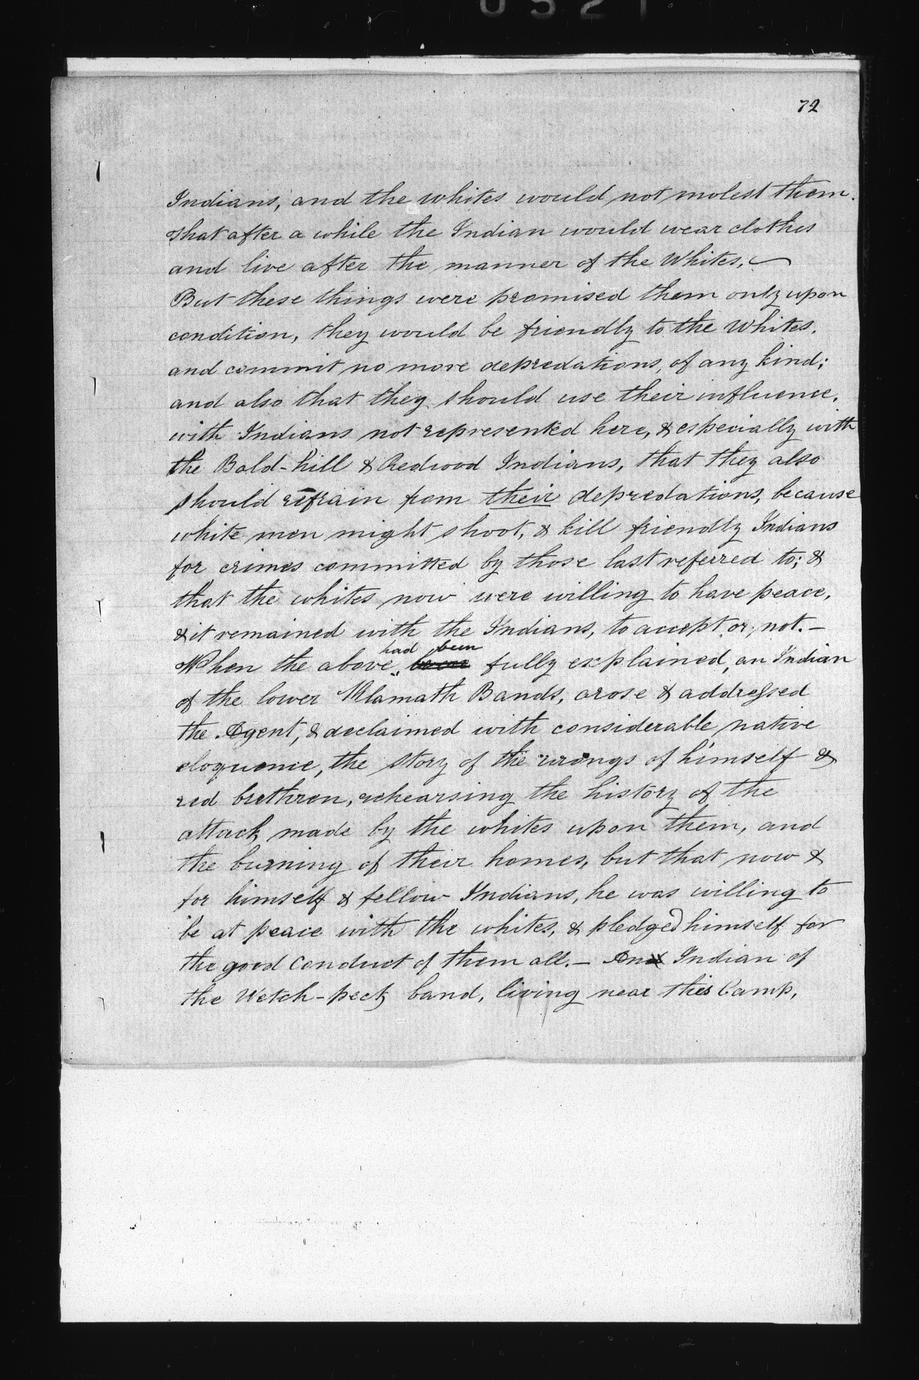 0521
72
Indians, and the whites would not molest them.
That after a while the Indian would wear clothes
and live after the manner of the Whites.
But these things were promised them only upon
condition, they would be friendly to the Whites.
and commit no more depredations, of any kind;
and also that they should use their influence,
with Indians not represented here, & especially with
the Bald-hill & Redwood Indians, that they also
should refrain from their depredations, because
white men might shoot, & kill friendly Indians
for crimes committed by those last referred to; &
that the whites now were willing to have peace,
& it remained with the Indians, to accept or, not.—
had been
When the above fully explained, an Indian
of the lower Klamath Bands, arose & addressed
the Agent, & declaimed with considerable native
eloquence, the story of the wrongs of himself &
red brethren, rehearsing the history of the
attack made by the whites upon them, and
the burning of their homes, but that now &
for himself & fellow Indians, he was willing to
be at peace with the whites, & pledged himself for
the good conduct of them all.— An Indian of
the Wetch-peck band, living near this Camp,